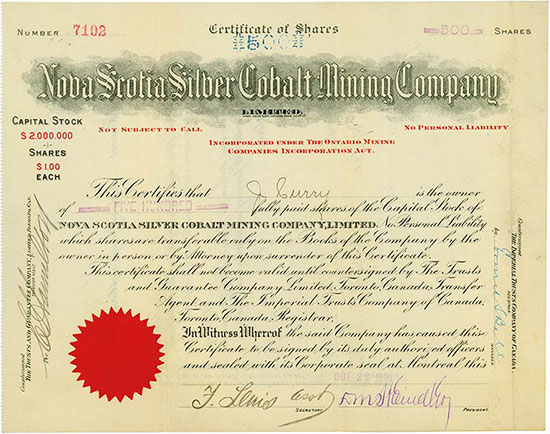 NUMBER 7102
Certificate of Shares
500 SHARES
500
Nova Scotia Silver Cobalt Mining Company
LIMITED.
CAPITAL STOCK
$ 2.000.000
SHARES
$ 1.00
EACH
NOT SUBJECT TO CALL
NO PERSONAL LIABILITY
INCORPORATED UNDER THE ONTARIO MINING
COMPANIES INCORPORATION ACT.
This Certifies that J. Curry is the owner
of FIVE HUNDRED fully paid shares of the Capital Stock of
NOVA SCOTIA SILVER COBALT MINING COMPANY, LIMITED. No Personal Liability
which shares are transferable only on the Books of the Company by the
owner in person or by Attorney upon surrender of this Certificate.
This certificate shall not become valid until countersigned by The Trusts
and Guarantee Company Limited, Toronto, Canada, Transfer
Agent and The Imperial Trusts Company of Canada,
Toronto, Canada, Registrar.
In Witness Whereof the said Company has caused this
Certificate to be signed by its duly authorized officers
and sealed with its Corporate seal at Montreal this
OCT 22
F. Lewis asst SECRETARY
PRESIDENT
Countersigned
THE TRUSTS AND GUARANTEE COMPANY, LIMITED, TORONTO, CAN.
Countersigned
THE IMPERIAL TRUSTS COMPANY OF CANADA
REGISTRAR
by